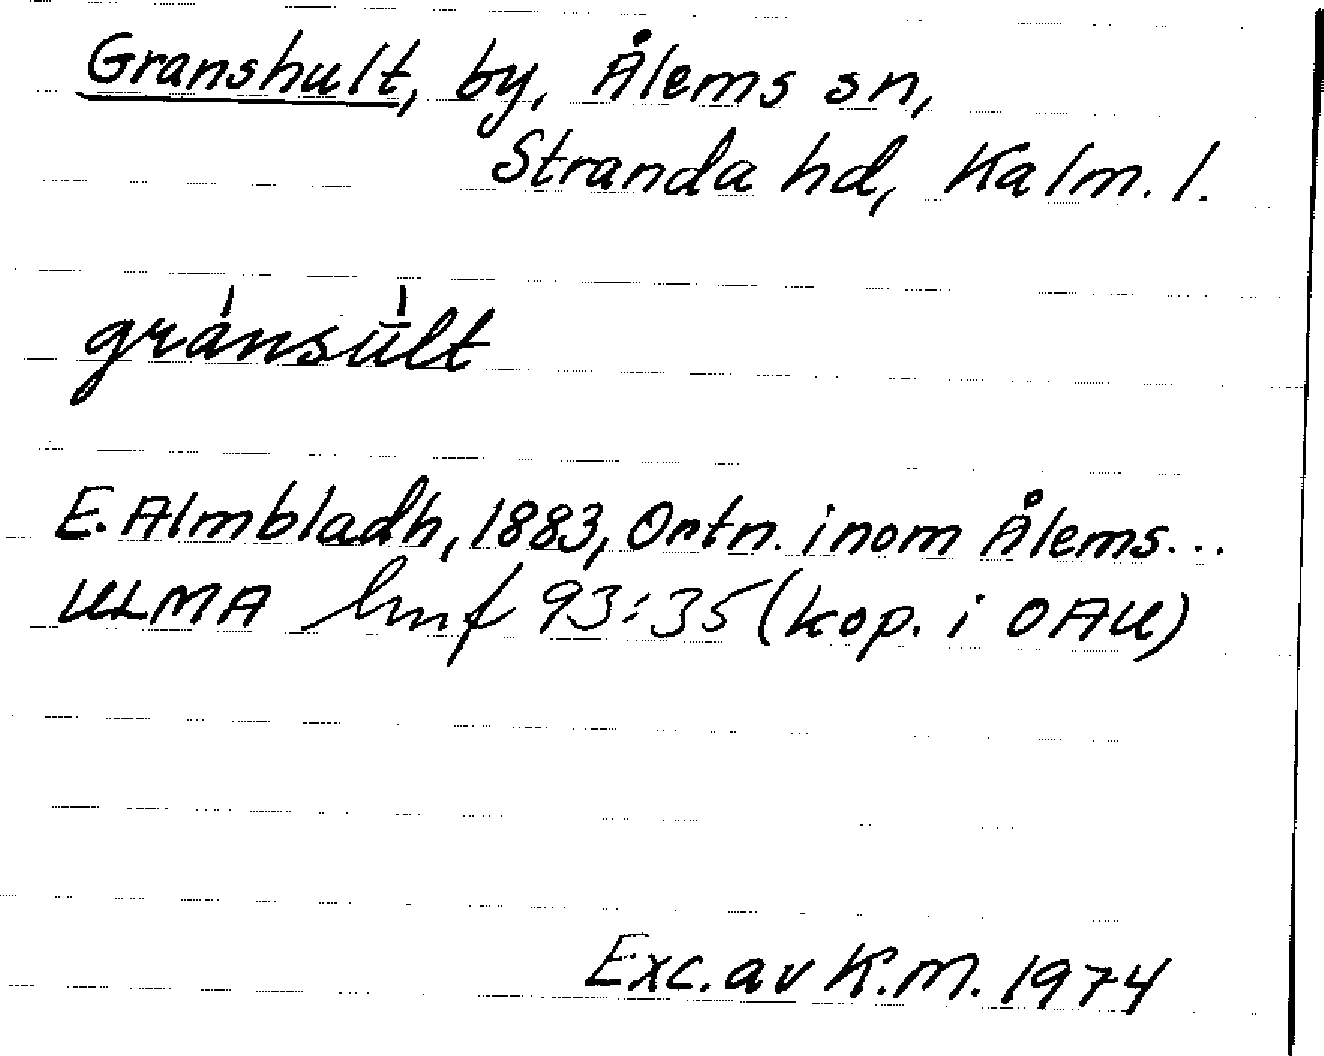 Granshult, by, Ålems sn,
Stranda hd, Kalm. l.
gránsu̍lt
E. Almbladh, 1883, Ortn. inom Ålems...
ULMA hmf 93:35 (kop. i OAU)
Exc. av K.M. 1974